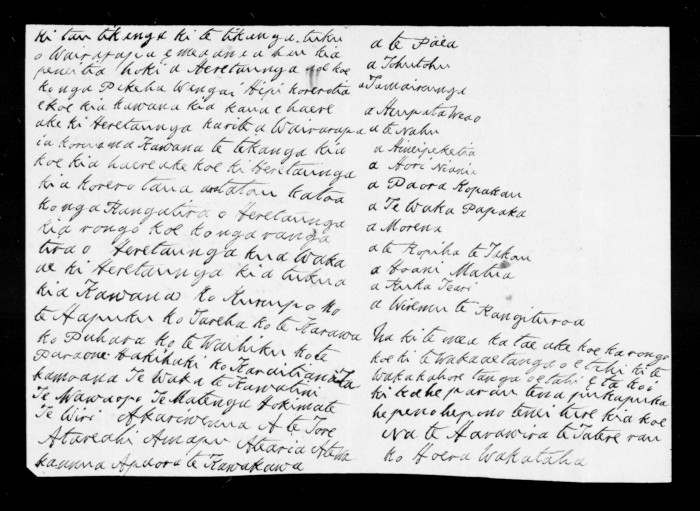 ki tau tikanga ki te tikanga tuku
o Wairarapa e mea ana ahau kia
peneitia hoki a Heretaunga koe
ko nga Pakeha Wangai Hipi korerotia
e koe kia Kawana kia kaua e haere
ake ki Heretaunga kariti a Wairarapa
ia Kawana te tikanga kia
koe kia haere ake koe ki Heretaunga
kia korero taua tatou katoa
ko nga Rangatira o Heretaunga
kia rongo koe ko nga ranga
tira o Heretaunga kua waka
ae ki Heretaunga kia tukua
kia Kawana ko Kurupo ko
te Hapuku ko Tareha ko te Karawa
ko Puhara ko te Waihiku ko te
Paraone Hakihuki ko Karaitiana Ta
kamoana Te Waka te Kawatini
Te Wawaopo Te Matenga Hokimate
Te Wiri A te Tore
Atareahi Amapu Ataria
Apaora te Kawakawa
a te Paea
a Tohutohu
a Tamairaunga
a te Nahu
a Hineipeketia
a Hori Niania
a Paora Kopakau
a Te Waka Papaka
a Morena
a te Kopiha te Takou
a Hoani Matua
a Wiremu te Rangituroa
Na ki te mea ka tae ake koe ka rongo
koe ki te wakaaetanga o etahi ki te
wakakahore tanga o etahi
ki ka he parau tena pukapuka
he pono he pono tenei kia koe
Na te Harawira te Tatere rau
ko Hoera Wakataha